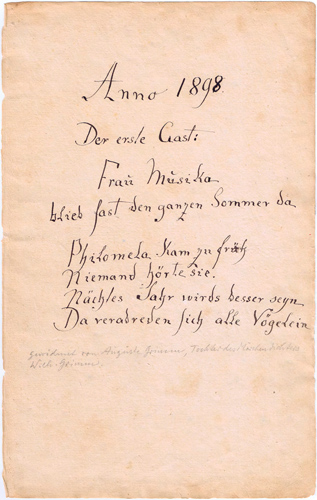 Anno 1898.
Der erste Gast:
Frau Musika
blieb fast den ganzen Sommer da
Philomela kam zu früh
Niemand hörte sie.
Nächstes Jahr wirds besser seyn
Da verabreden sich alle Vögelein
gewidmet von Auguste Grimm, Tochter des
Wilh. Grimm,